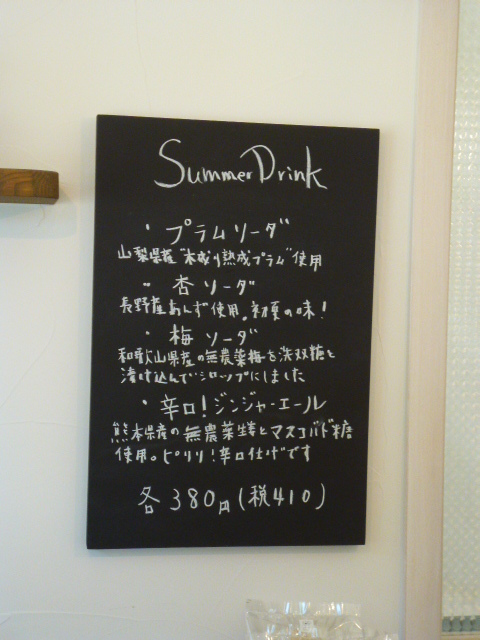 Summer Drink
・プラムソーダ
山梨県産"木成り熟成プラム"使用
・杏ソーダ
長野産あんず使用。初夏の味!
・梅ソーダ
和歌山県産の無農薬梅を洗双糖と
漬け込んでシロップにしました
・辛口!ジンジャーエール
熊本県産の無農薬生姜とマスコバド糖
使用。ピリリ!辛口仕上げです
各380円(税410)